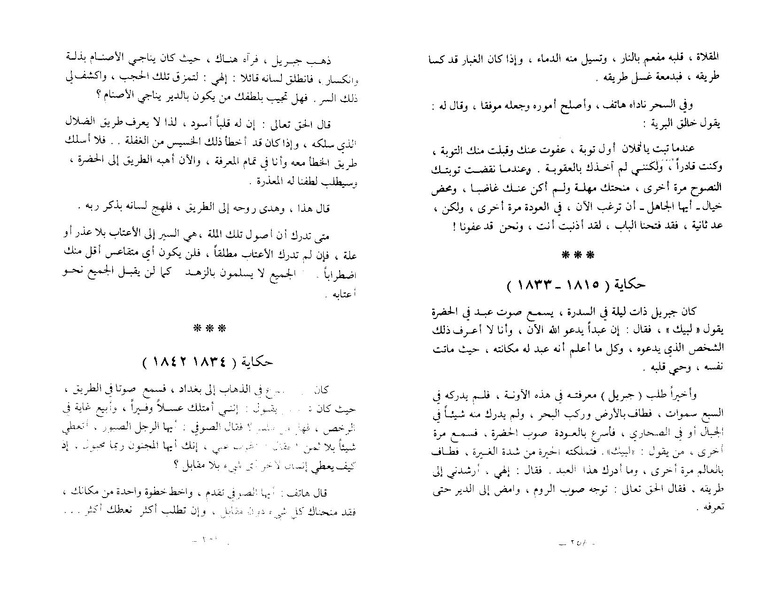 المقلاة ، قلبه مفعم بالنار ، وتسيل منه الدماء ، وإذا كان الغبار قد كسا
طريقه ، فبدمعة غسل طريقه .
وفي السحر ناداه هاتف ، وأصلح أموره وجعله موفقا ، وقال له :
يقول خالق البرية :
عندما تبت يا فلان أول توبة ، عفوت عنك وقبلت منك التوبة ،
وكنت قادراً ، ولكنني لم آخذك بالعقوبة . وعندما نقضت توبتك
النصوح مرة أخرى ، منحتك مهلة ولم أكن عنك غاضبا ، وبمحض
خيال ـ أيها الجاهل ـ أن ترغب الآن ، في العودة مرة أخرى ، ولكن ،
عد ثانية ، فقد فتحنا الباب ، لقد أذنبت أنت ، ونحن قد عفونا !
***
حكاية ( ١٨١٥ - ١٨٣٣ )
كان جبريل ذات ليلة في السدرة ، يسمع صوت عبد في الحضرة
يقول « لبيك » ، فقال : إن عبداً يدعو الله الآن ، وأنا لا أعرف ذلك
الشخص الذي يدعوه ، وكل ما أعلم أنه عبد له مكانته ، حيث ماتت
نفسه ، وحيي قلبه .
وأخيراً طلب ( جبريل ) معرفته في هذه الآونة ، فلم يدركه في
السبع سموات ، فطاف بالأرض وركب البحر ، ولم يدرك منه شيئاً في
الجبال أو في الصحاري ، فأسرع بالعودة صوب الحضرة ، فسمع مرة
أخرى ، من يقول : «لبيك» . فتملكته الحيرة من شدة الغيرة ، فطاف
بالعالم مرة أخرى ، وما أدرك هذا العبد . فقال : إلهي ، أرشدني إلى
طريقه ، فقال الحق تعالى : توجه صوب الروم ، وامض إلى الدير حتى
تعرفه .
ذهب جبريل ، فرآه هناك ، حيث كان يناجي الأصنام بذلة
وانكسار ، فانطلق لسانه قائلا : إلهي : لتمزق تلك الحجب ، واكشف لي
ذلك السر . فهل تجيب بلطفك من يكون بالدير يناجي الأصنام ؟
قال الحق تعالى : إن له قلباً أسود ، لذا لا يعرف طريق الضلال
الذي سلكه ، وإذا كان قد أخطأ ذلك الخسيس من الغفلة .. فلا أسلك
طريق الخطأ معه وأنا في تمام المعرفة ، والآن أهبه الطريق إلى الحضرة ،
وسيطلب لطفنا له المعذرة .
قال هذا ، وهدى روحه إلى الطريق ، فلهج لسانه بذكر ربه .
متى تدرك أن أصول تلك الملة ، هي السير إلى الأعتاب بلا عذر أو
علة ، فإن لم تدرك الأعتاب مطلقاً ، فلن يكون أي متقاعس أقل منك
اضطراباً . الجميع لا يسلمون بالزهد كما لن يقبل الجميع نحو
أعتابه .
***
حكاية ( ١٨٣٤ ١٨٤٢ )
كان في الذهاب إلى بغداد ، فسمع صوتا في الطريق ،
حيث كان يقول : إنني أمتلك عسلاً وفيراً ، وأبيع غاية في
الرخص ، فقال الصوفي : أيها الرجل الصبور ، أتعطي
شيئاً بلا ثمن ؟ فقال : عني ، إنك أيها المجنون ربما مخبول . إذ
كيف يعطي إنسان لآخر أي شيء بلا مقابل ؟
قال هاتف : أيها الصوفي تقدم ، واخط خطوة واحدة من مكانك ،
فقد منحناك كل شيء دون مقابل ، وإن تطلب أكثر نعطك أكثر ...